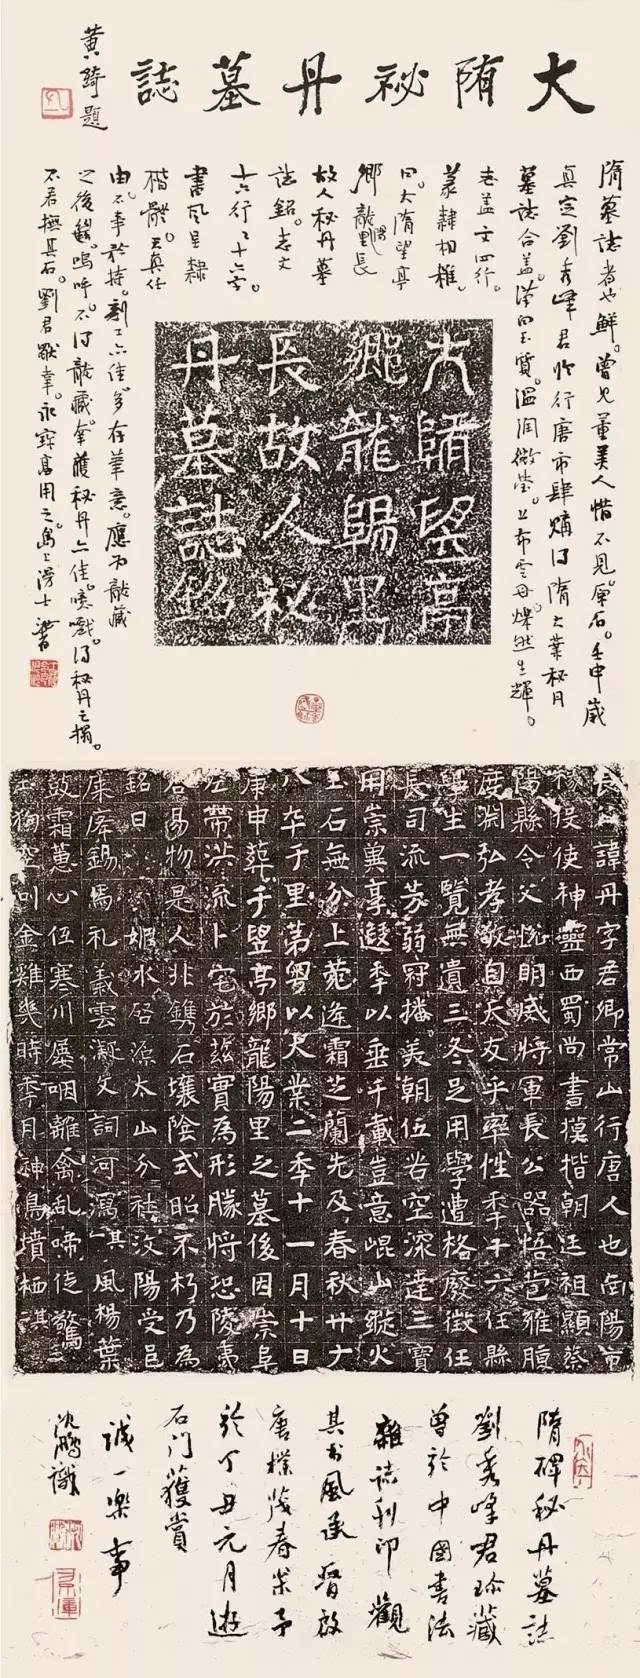 大隋祕丹墓誌
黄綺題
隋墓誌者也鮮。曾見董美人惜不見原石。壬申歲
真定劉秀峰君於行唐市肆購得隋大業秘丹
墓誌合蓋。漢白玉質。溫潤微瑩。上布雲母燦然生輝。
志蓋文四行。
篆隸相雜。
曰。大隋望亭
鄉龍陽里長
故人秘丹墓
誌銘。志文
十六行行十六字。
書風呈隸
楷體。天真任
由。不事矜持。刻工亦佳。多存筆意。應為龍藏
之後繼。嗚呼。不得龍藏。拿護秘丹亦佳。噫戲。得秘丹之搨。
不若撫其石。劉君
大隋望亭
鄉龍陽里
長故人祕
丹墓誌銘
長諱丹字君卿常山行唐人也
投使神靈西蜀尚書模楷朝廷祖顯蔡
陽縣令父悅明威將軍長公器悟苞雅腹
度淵弘孝敬自天友乎率性季十六任縣
學生一覽無遺三冬足用學遭格廢徵任
長司流芳弱冠播美朝伍岩空深達三寶
用崇冀享遐季以垂千載豈意崐山縱火
玉石無分上菀逢霜芝蘭先及春秋廿六
八卒于里第粵以大業二季十一月十日
庚申葬于望亭鄉龍陽里之墓後因崇阜
左帶洪流卜宅於茲實為形勝将恐陵夷
谷易物是人非鐫石壤陰式昭不朽乃為
銘曰
媚水啓源太山分社汶陽受邑
錫馬礼義雲凝文詞河瀉其風楊葉
敲霜蕙心伍寒川屢咽離禽乱啼徒驚
空叫金雞幾時季月神鳥墳栖
隋碑秘丹墓誌
劉秀峰君珍藏
曾於中國書法
雜誌刊印觀
其書風承晉啟
唐樸茂春容予
於丁丑元月遊
石门獲賞
誠一樂事
沈鵬識